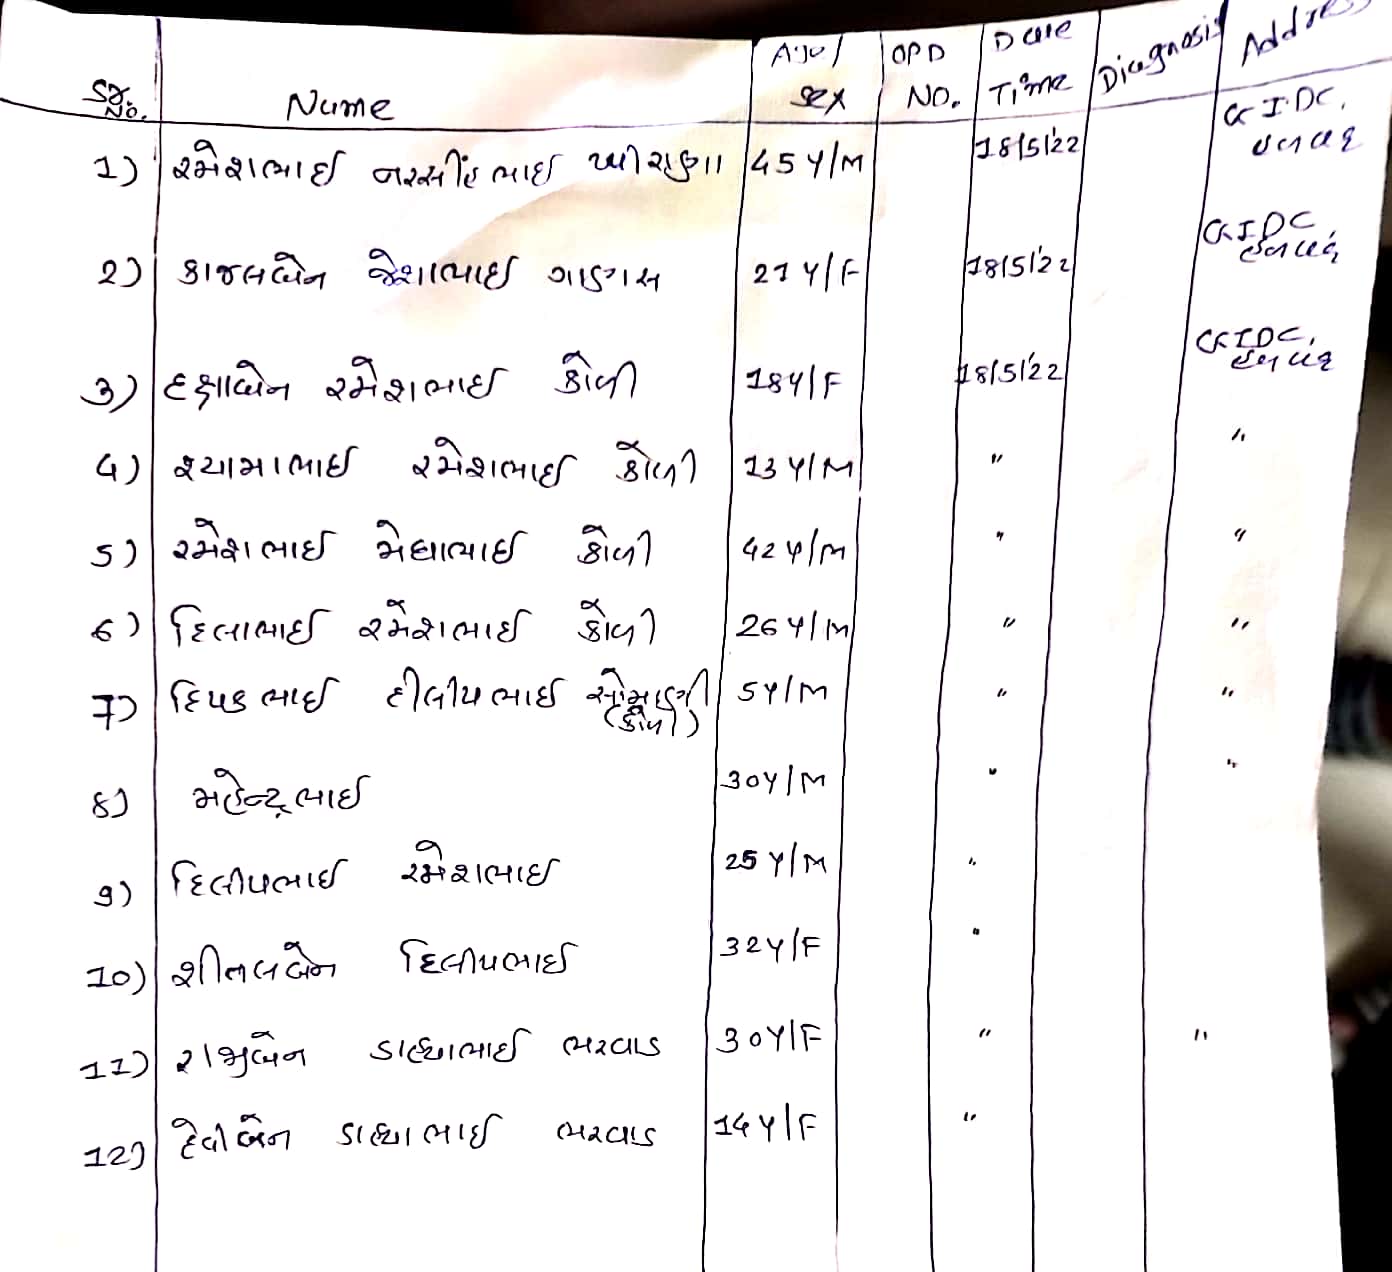 Sr. No. Name Age/Sex OPD NO. Date Time Diagnosis Address
1) રમેશભાઈ નરસીંહભાઈ 45 Y/M 18/5/22 GIDC, હળવદ
2) કાજલબેન જેશાભાઈ 21 Y/F 18/5/22 GIDC, હળવદ
3) દક્ષાબેન રમેશભાઈ કોળી 18Y/F 18/5/22 GIDC, હળવદ
4) શ્યામાભાઈ રમેશભાઈ કોળી 13 Y/M " "
5) રમેશભાઈ મેઘાભાઈ કોળી 42 Y/M " "
6) દિલાભાઈ રમેશભાઈ કોળી 26 Y/M " "
7) દિપકભાઈ દીલીપભાઈ સોમાણી 5Y/M " "
(કોળી)
8) મહેન્દ્રભાઈ 30Y/M " "
9) દિલીપભાઈ રમેશભાઈ 25 Y/M "
10) શીતલબેન દિલીપભાઈ 32Y/F "
11) રાજુબેન ડાહ્યાભાઈ ભરવાડ 30Y/F " "
12) દેવીબેન ડાહ્યાભાઈ ભરવાડ 14 Y/F "